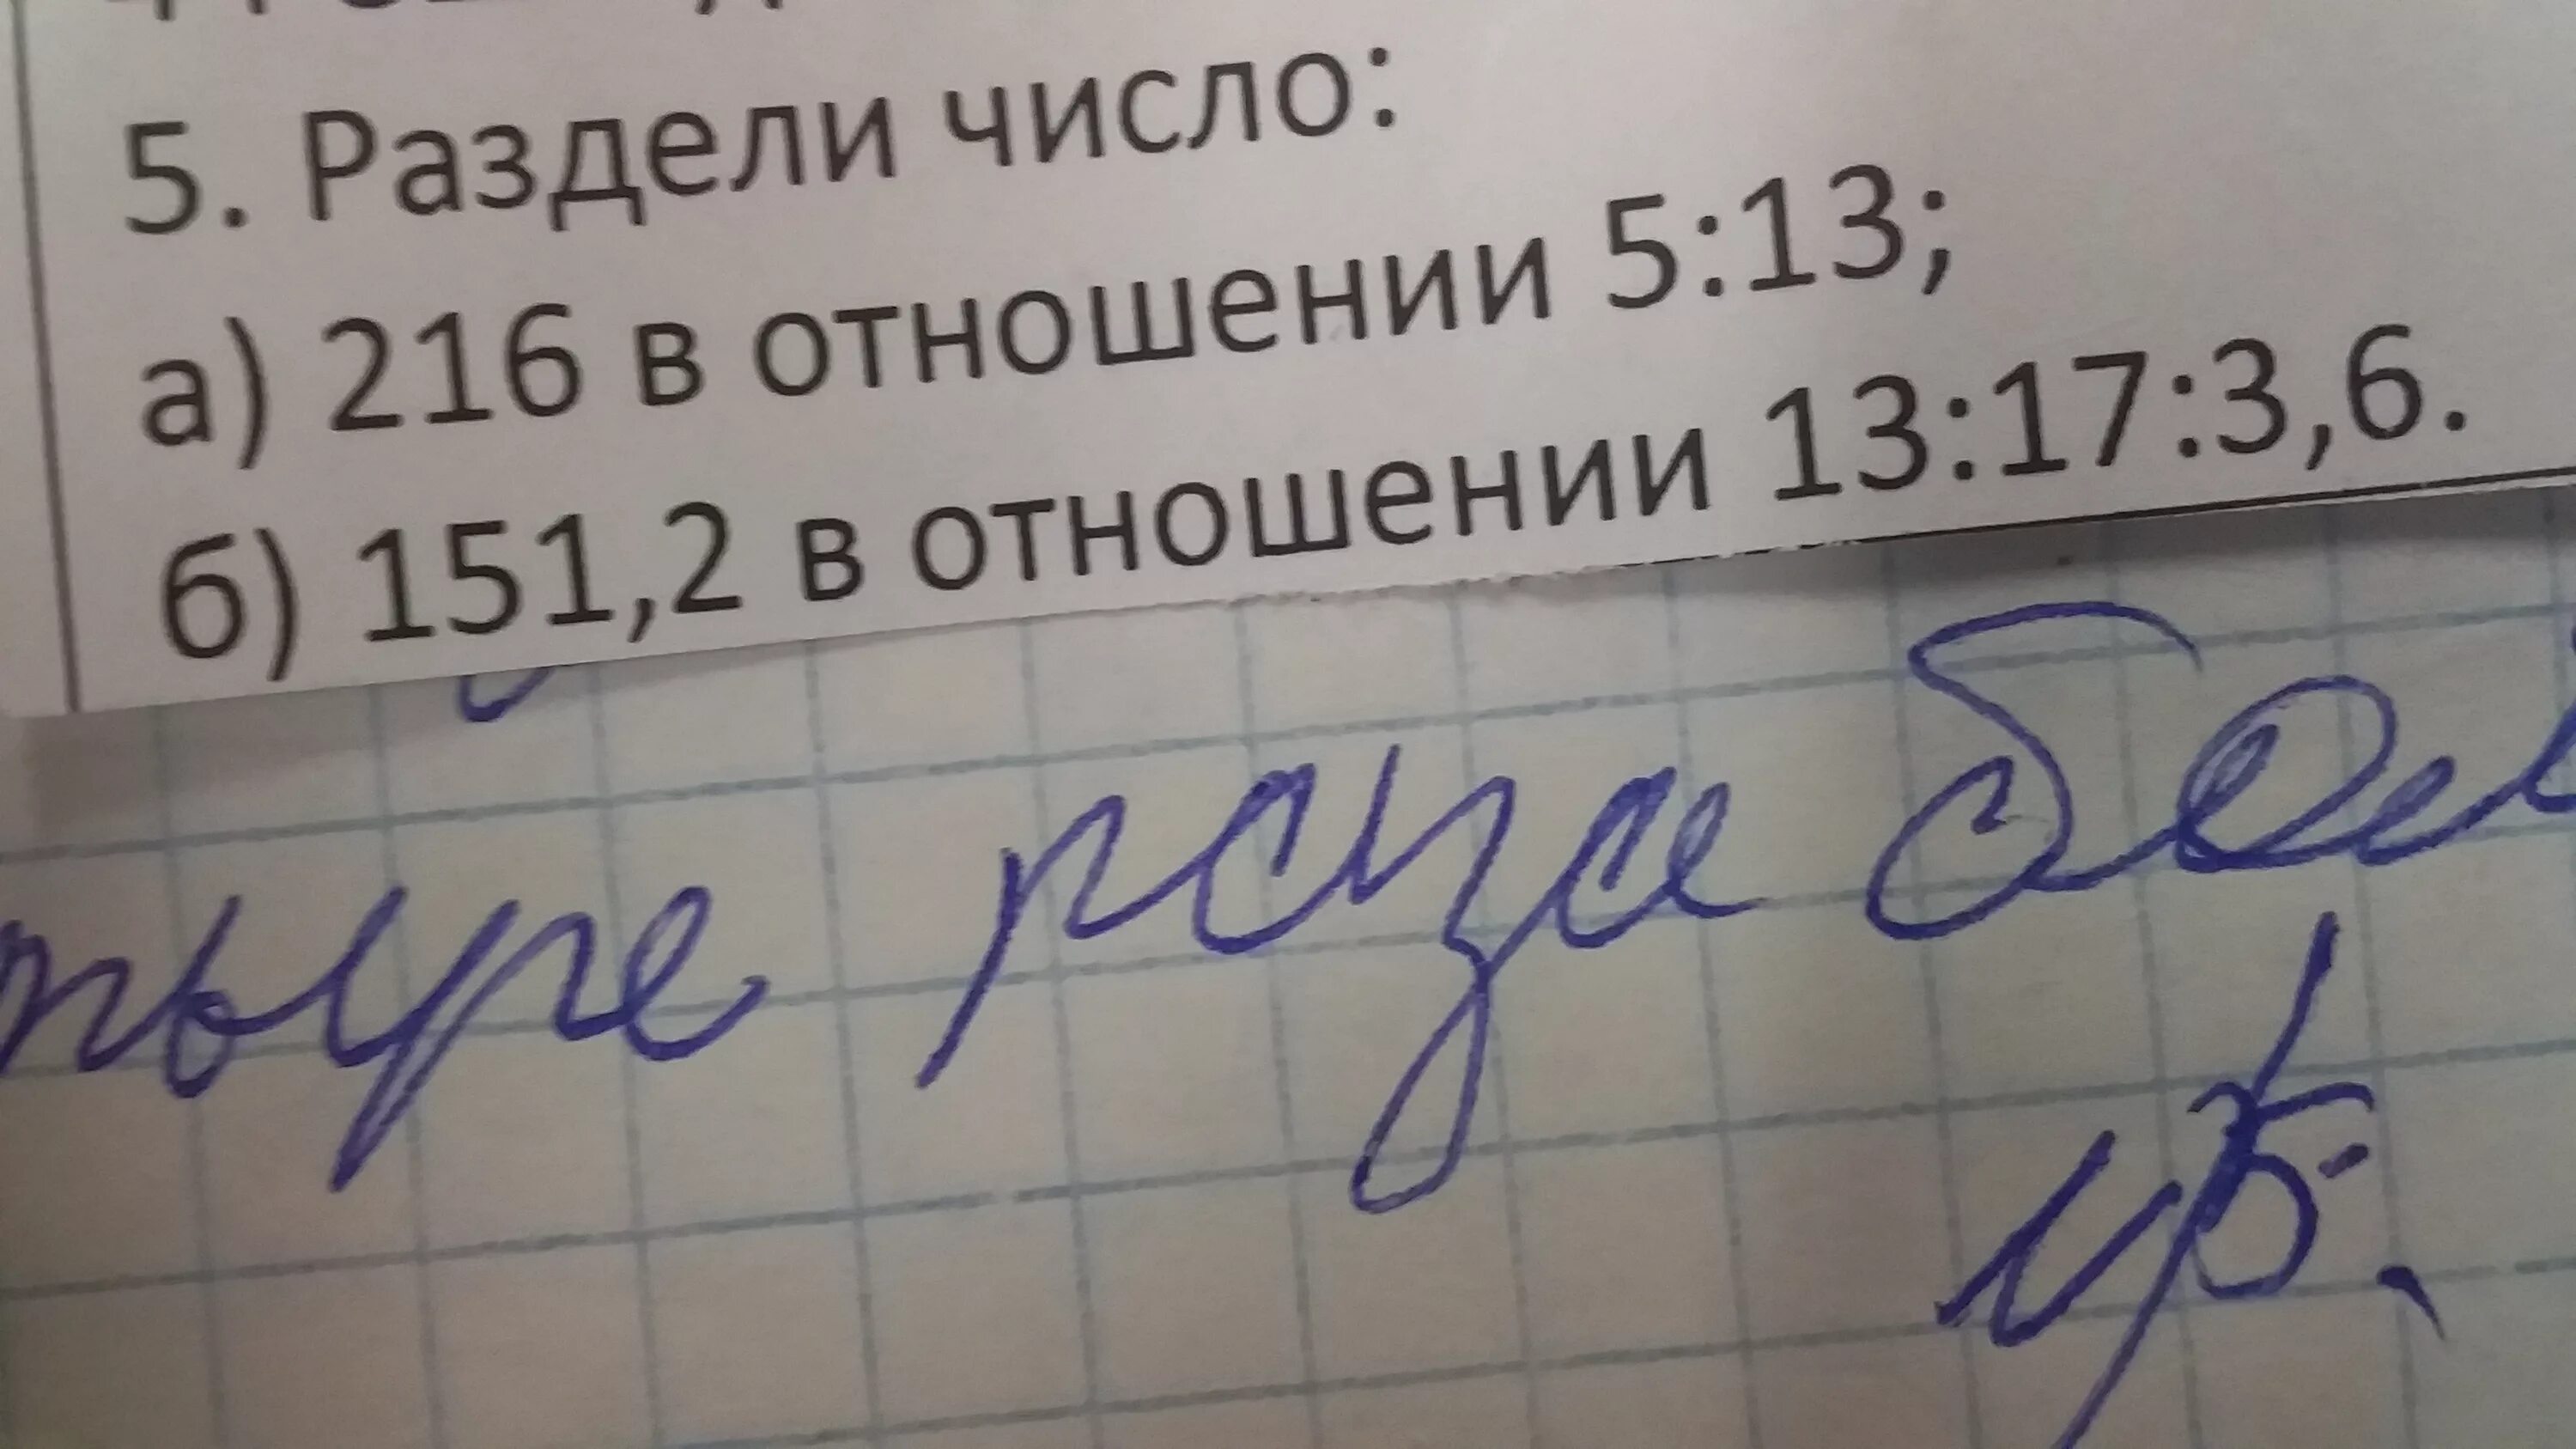 5. Раздели число:
а) 216 в отношении 5:13;
б) 151,2 в отношении 13:17:3,6.
тыре раза бол